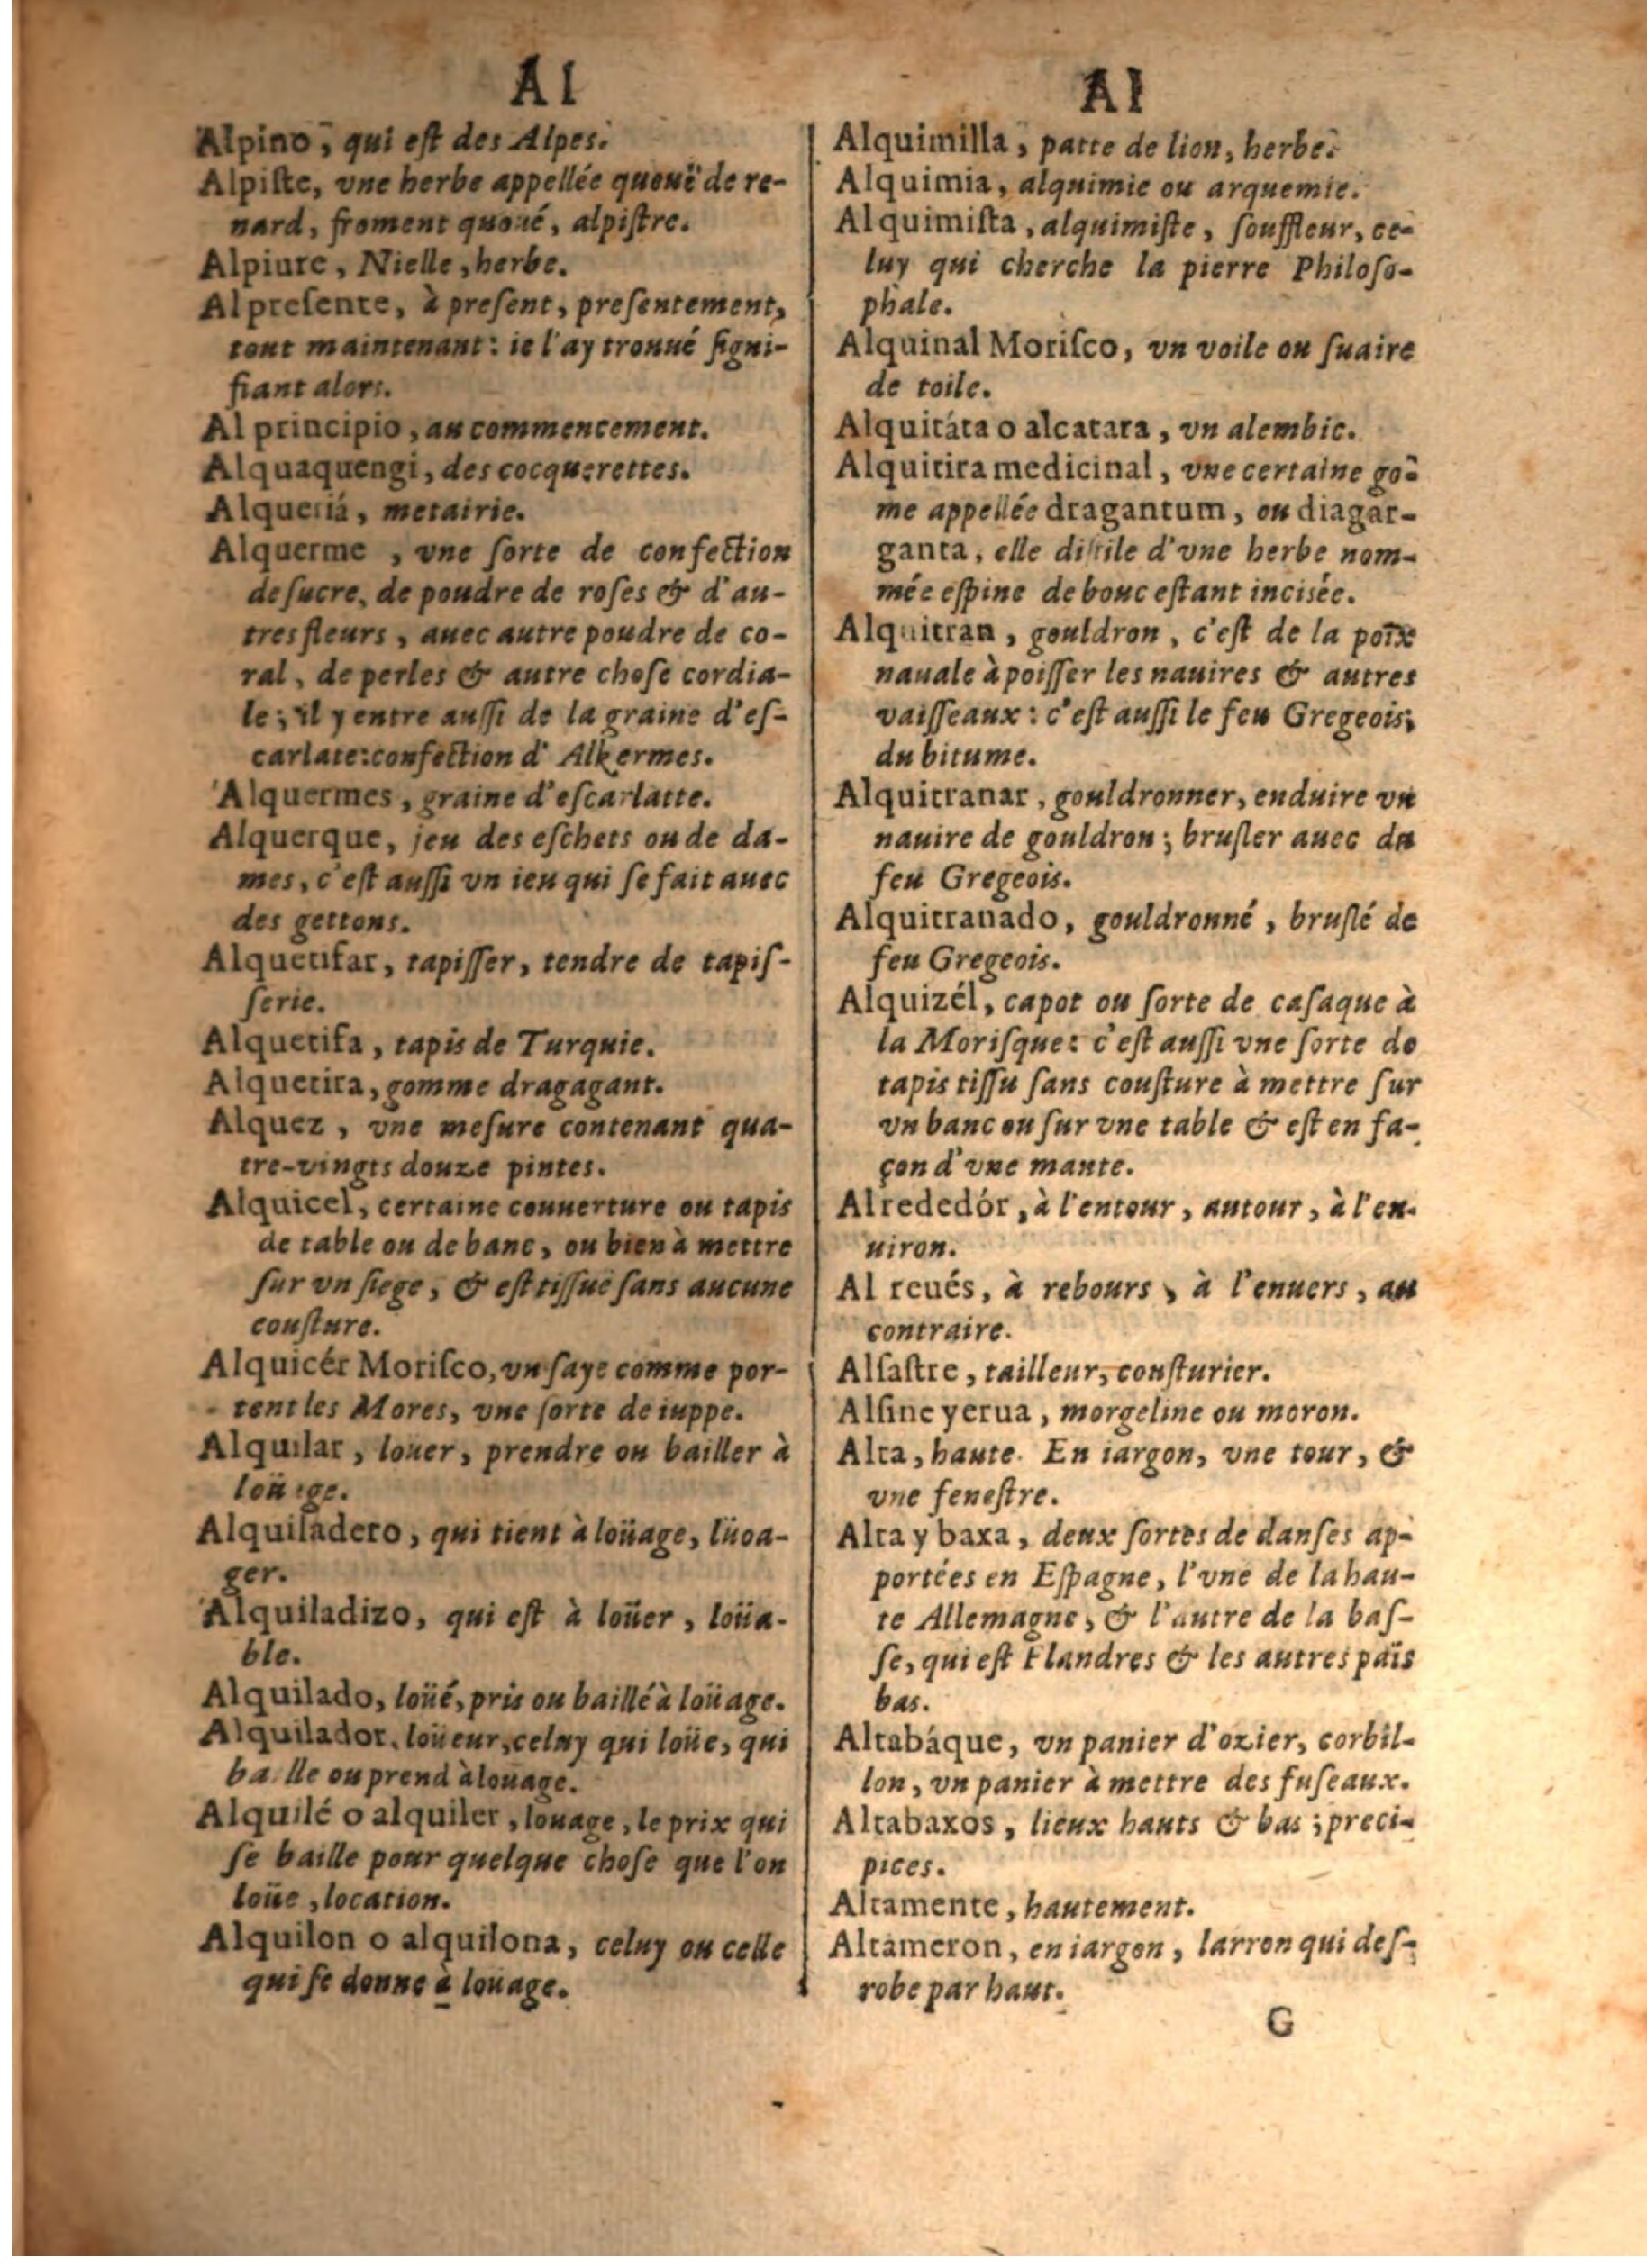 Al
Alpino, qui eſt des Alpes.
Alpiſte, vne herbe appellée queuë de re-
nard, froment quoüé, alpiſtre.
Alpiure, Nielle, herbe.
Al preſente, à preſent, preſentement,
tout maintenant: ie l'ay trouué ſigni-
fiant alors.
Al principio, au commencement.
Alquaquengi, des cocquerettes.
Alqueriá, metairie.
Alquerme, vne ſorte de confection
de ſucre, de poudre de roſes & d'au-
tres fleurs, auec autre poudre de co-
ral, de perles & autre choſe cordia-
le; il y entre auſſi de la graine d'eſ-
carlate: confection d'Alkermes.
Alquermes, graine d'eſcarlatte.
Alquerque, jeu des eſchets ou de da-
mes, c'eſt auſſi vn ieu qui ſe fait auec
des gettons.
Alquetifar, tapiſſer, tendre de tapiſ-
ſerie.
Alquetifa, tapis de Turquie.
Alquetira, gomme dragagant.
Alquez, vne meſure contenant qua-
tre-vingts douze pintes.
Alquicel, certaine couuerture ou tapis
de table ou de banc, ou bien à mettre
ſur vn ſiege, & eſt tiſſuë ſans aucune
couſture.
Alquicér Moriſco, vn ſaye comme por-
tent les Mores, vne ſorte de iuppe.
Alquilar, louer, prendre ou bailler à
loüage.
Alquiladero, qui tient à loüage, lüoa-
ger.
Alquiladizo, qui eſt à loüer, loüa-
ble.
Alquilado, loüé, pris ou baillé à loüage.
Alquilador, loüeur, celuy qui loüe, qui
baille ou prend à louage.
Alquilé o alquiler, louage, le prix qui
ſe baille pour quelque choſe que l'on
loüe, location.
Alquilon o alquilona, celuy ou celle
qui ſe donne à louage.
Al
Alquimilla, patte de lion, herbe.
Alquimia, alquimie ou arquemie.
Alquimiſta, alquimiſte, ſouffleur, ce-
luy qui cherche la pierre Philoſo-
phale.
Alquinal Moriſco, vn voile ou ſuaire
de toile.
Alquitáta o alcatara, vn alembic.
Alquitira medicinal, vne certaine gõ-
me appellée dragantum, ou diagar-
ganta, elle diſtile d'vne herbe nom-
mée eſpine de bouc eſtant incisée.
Alquitran, gouldron, c'eſt de la poix
nauale à poiſſer les nauires & autres
vaiſſeaux: c'eſt auſſi le feu Gregeois;
du bitume.
Alquitranar, gouldronner, enduire vn
nauire de gouldron; bruſler auec du
feu Gregeois.
Alquitranado, gouldronné, bruſlé de
feu Gregeois.
Alquizél, capot ou ſorte de caſaque à
la Moriſque: c'eſt auſſi vne ſorte de
tapis tiſſu ſans couſture à mettre ſur
vn banc ou ſur vne table & eſt en fa-
çon d'vne mante.
Alrededór, à l'entour, autour, à l'en-
uiron.
Al reués, à rebours, à l'enuers, au
contraire.
Alſaſtre, tailleur, couſturier.
Alſine yerua, morgeline ou moron.
Alta, haute. En iargon, vne tour, &
vne feneſtre.
Alta y baxa, deux ſortes de danſes ap-
portées en Eſpagne, l'vne de la hau-
te Allemagne, & l'autre de la baſ-
ſe, qui eſt Flandres & les autres païs
bas.
Altabáque, vn panier d'ozier, corbil-
lon, vn panier à mettre des fuſeaux.
Altabaxos, lieux hauts & bas; preci-
pices.
Altamente, hautement.
Altameron, en iargon, larron qui deſ-
robe par haut.
G